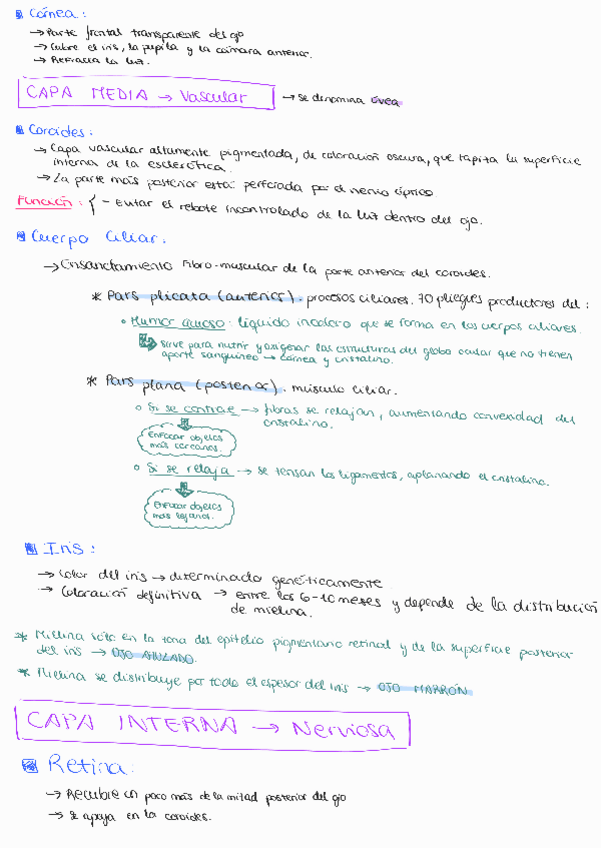 Córnea:
→ Parte frontal transparente del ojo
→ Cubre el iris, la pupila y la cámara anterior.
→ Refracta la luz.
CAPA MEDIA → Vascular → se denomina úvea
Coroides:
→ Capa vascular altamente pigmentada, de coloración oscura, que tapita la superficie
interna de la esclerótica.
→ La parte más posterior está perforada por el nervio óptico
Función: { - Evitar el rebote incontrolado de la luz dentro del ojo.
Cuerpo Ciliar:
→ Ensanchamiento fibro-muscular de la parte anterior del coroides.
* Pars plicata (anterior). procesos ciliares. 70 pliegues productores del :
Humor acuoso: líquido incoloro que se forma en los cuerpos ciliares.
sirve para nutrir y oxigenar las estructuras del globo ocular que no tienen
aporte sanguíneo → córnea y cristalino.
* Pars plana (posterior). músculo ciliar.
Si se contrae → fibras se relajan, aumentando convexidad del
cristalino.
Enfocar objetos
más cercanos.
Si se relaja → se tensan los ligamentos, aplanando el cristalino.
Enfocar objetos
más lejanos.
Iris:
→ Color del iris → determinado genéticamente
→ Coloración definitiva → entre los 6-10 meses y depende de la distribución
de mielina.
* Mielina sólo en la zona del epitelio pigmentario retinal y de la superficie posterior
del iris → OJO AZULADO.
* Mielina se distribuye por todo el espesor del iris → OJO MARRÓN
CAPA INTERNA → Nerviosa
Retina:
→ Recubre un poco más de la mitad posterior del ojo
→ Se apoya en la coroides.